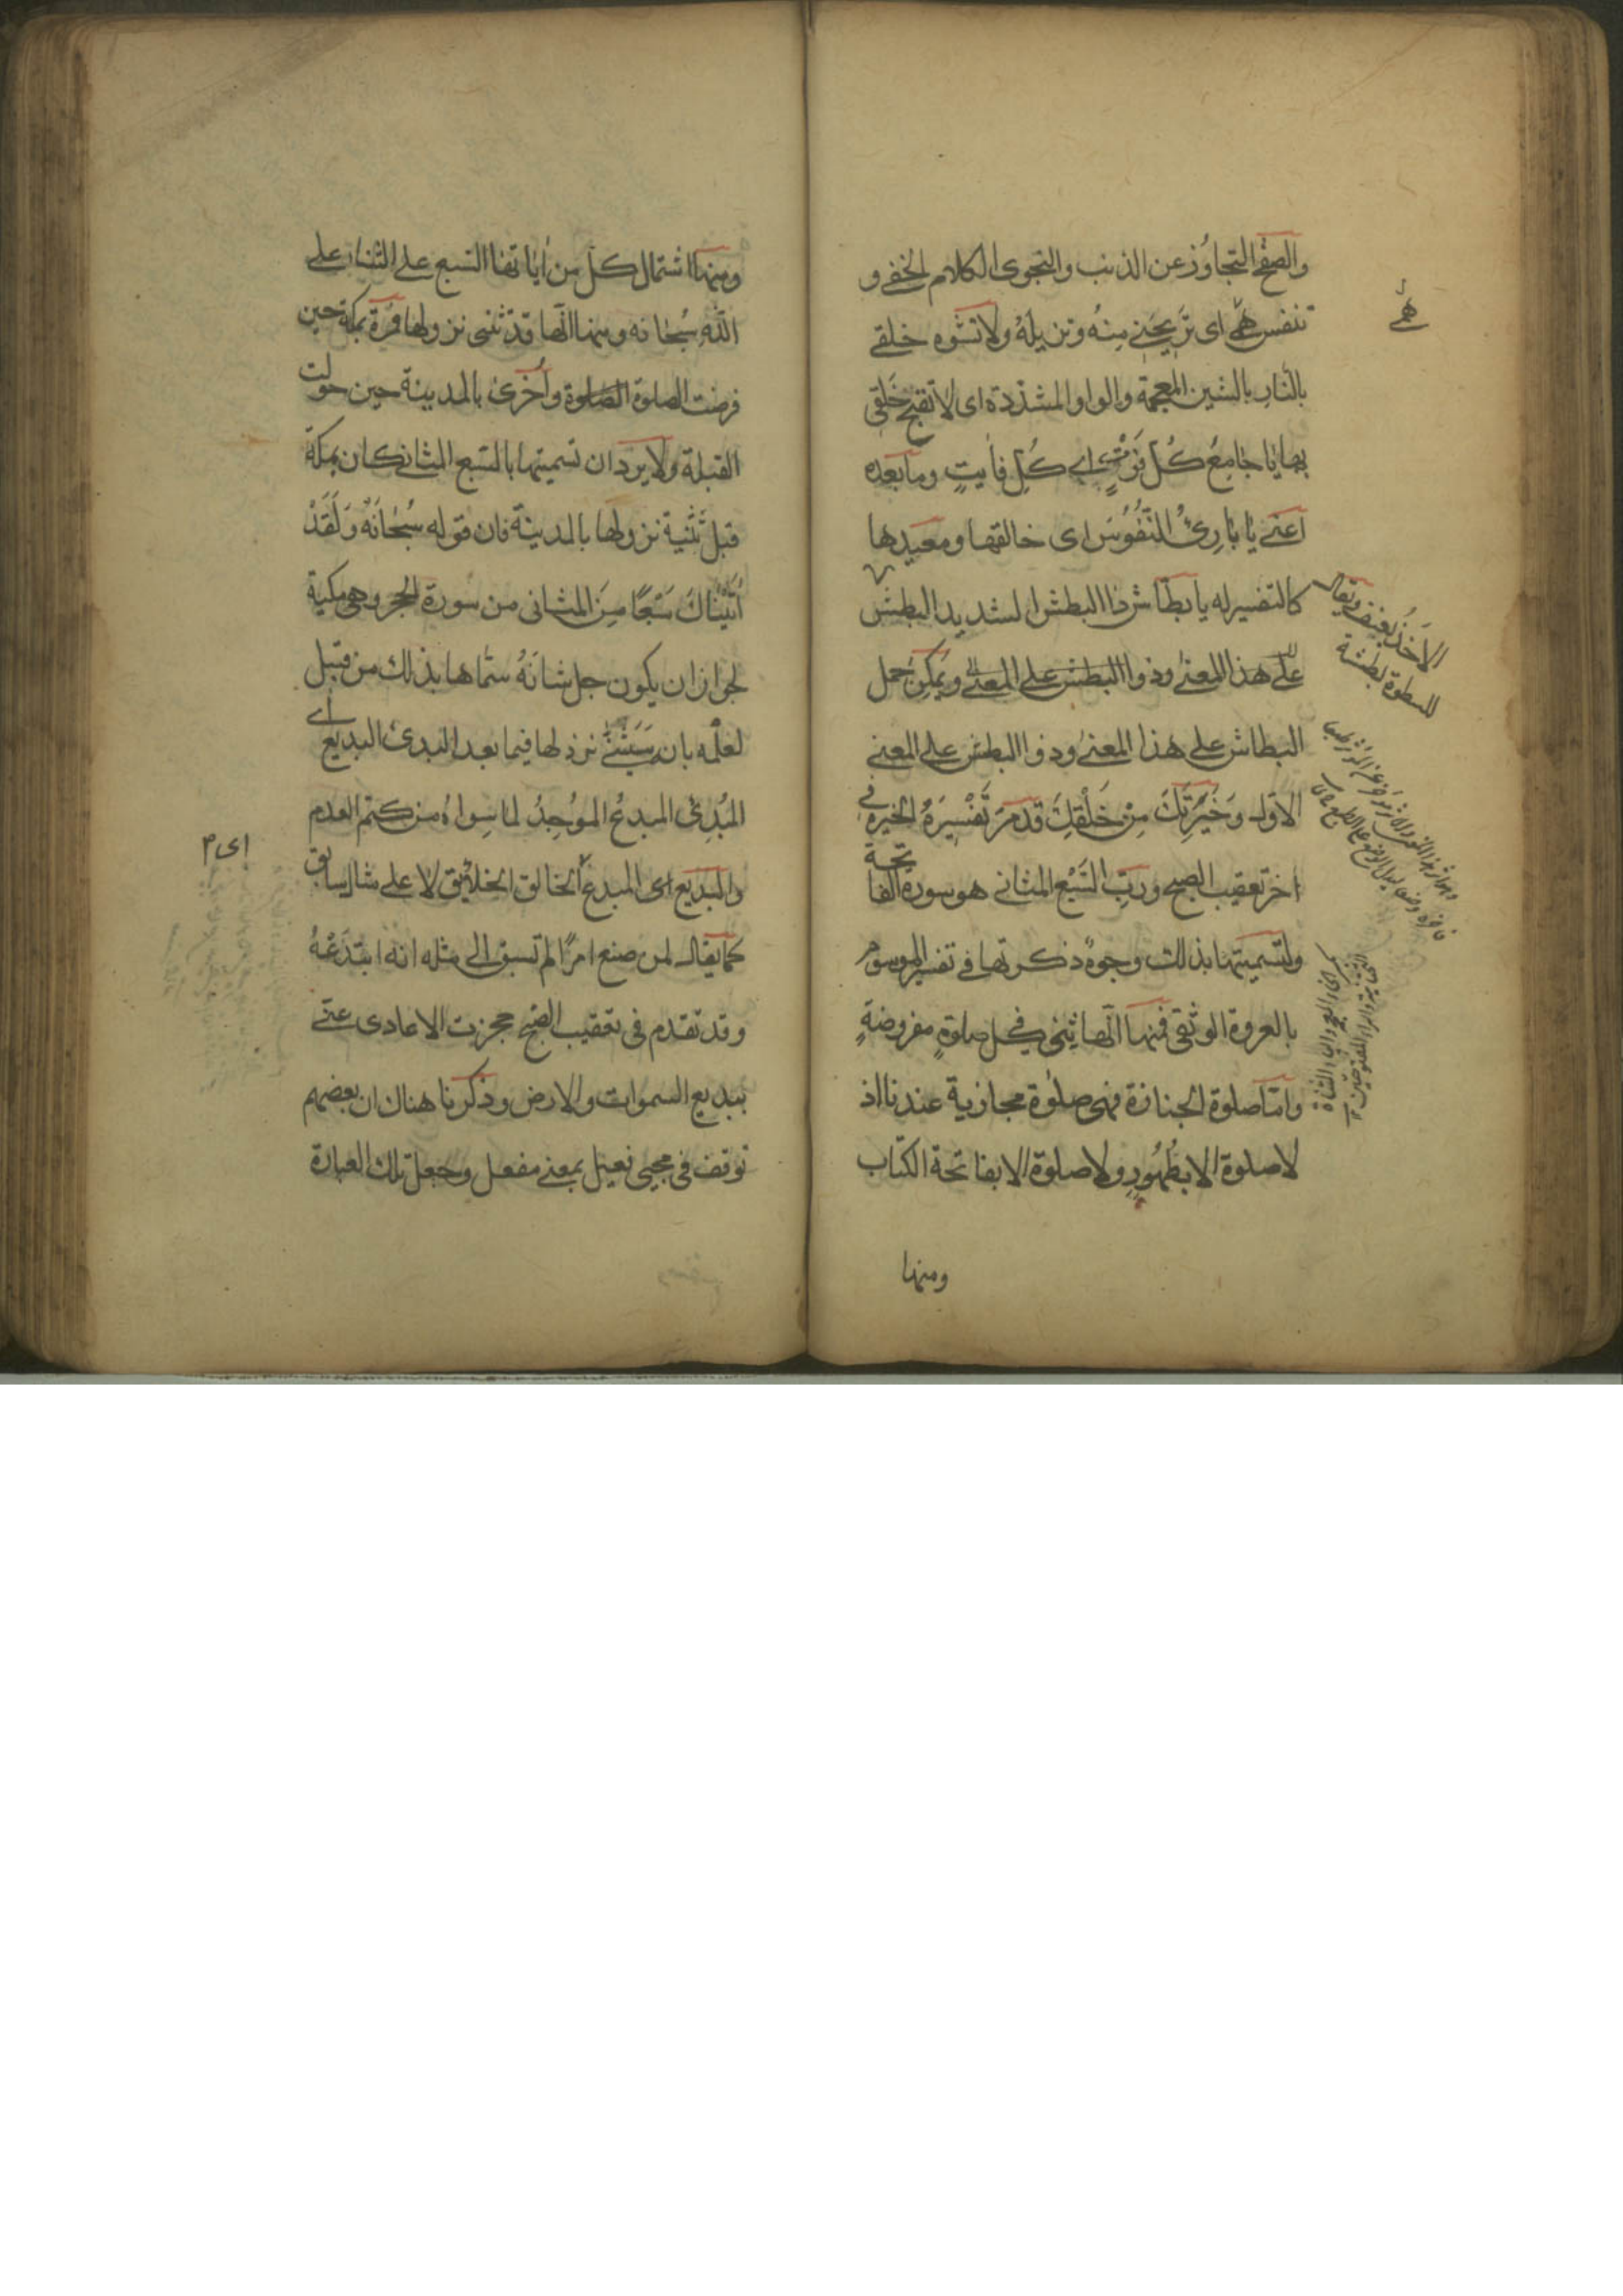 والصفح التجاوز عن الذنب والنجوى الكلام الخفي و
تنفس همّي اى تريحني منه وتزيله ولا تشوه خلقي
بالنار بالشين المعجمة والواو المشددة اى لا تقبح خلقي
بها يا جامع كل فوت اے كل فايت وما بعده
اعني يا بارئ النفوس اى خالقها ومعيدها
كالتفسير له يا بطاش ذا البطش الشديد البطش
على هذا المعنى وذوا البطش على المعنى ويمكن حمل
البطاش على هذا المعنى وذوا البطش على المعنى
الاول وخيرتك من خلقك قد مر تفسيره الخيرة في
اخر تعقيب الصبح ورب السبع المثاني هو سورة الفاتحة
ولتسميتها بذلك وجوه ذكرتها في تفسير الموسوم
بالعروة الوثقى فمنها انها يثنى في كل صلوة مفروضة
واما صلوة الجنازة فهى صلوة مجازية عندنا اذ
لا صلوة الا بطهور ولا صلوة الا بفاتحة الكتاب
ومنها
همّي
الاخذ بعنف ويقال
للسطوة بطشة
ومنها اشتمال كل من اياتها السبع على الثناء على
الله سبحانه ومنها انها قد تثنى نزولها فمرة بمكة حين
فرضت الصلوة الصلوة وأخرى بالمدينة حين حولت
القبلة ولا يرد ان تسميتها بالسبع المثاني كان بمكة
قبل تثنية نزولها بالمدينة فان قوله سبحانه وَلَقَدْ
اتيناك سبعًا مِنَ المثانى من سورة الحجر وهى مكية
لجواز ان يكون جل شانه سماها بذلك من قبل
لعلمه بان سيثني نزولها فيما بعد البدئ البديع اے
المُبدئ المبدع الموجد لما سواه من كتم العدم
والبديع اى المبدع الخالق الخلائق لا على مثال سابق
كما يقال لمن صنع امرًا لم تسبق الى مثله انه ابتدعه
وقد تقدم في تعقيب الصبح حجزت الاعادى عني
ببديع السموات والارض وذكرنا هناك ان بعضهم
توقف في مجيئ فعيل بمعنى مفعل وجعل تلك العبارة
اى م